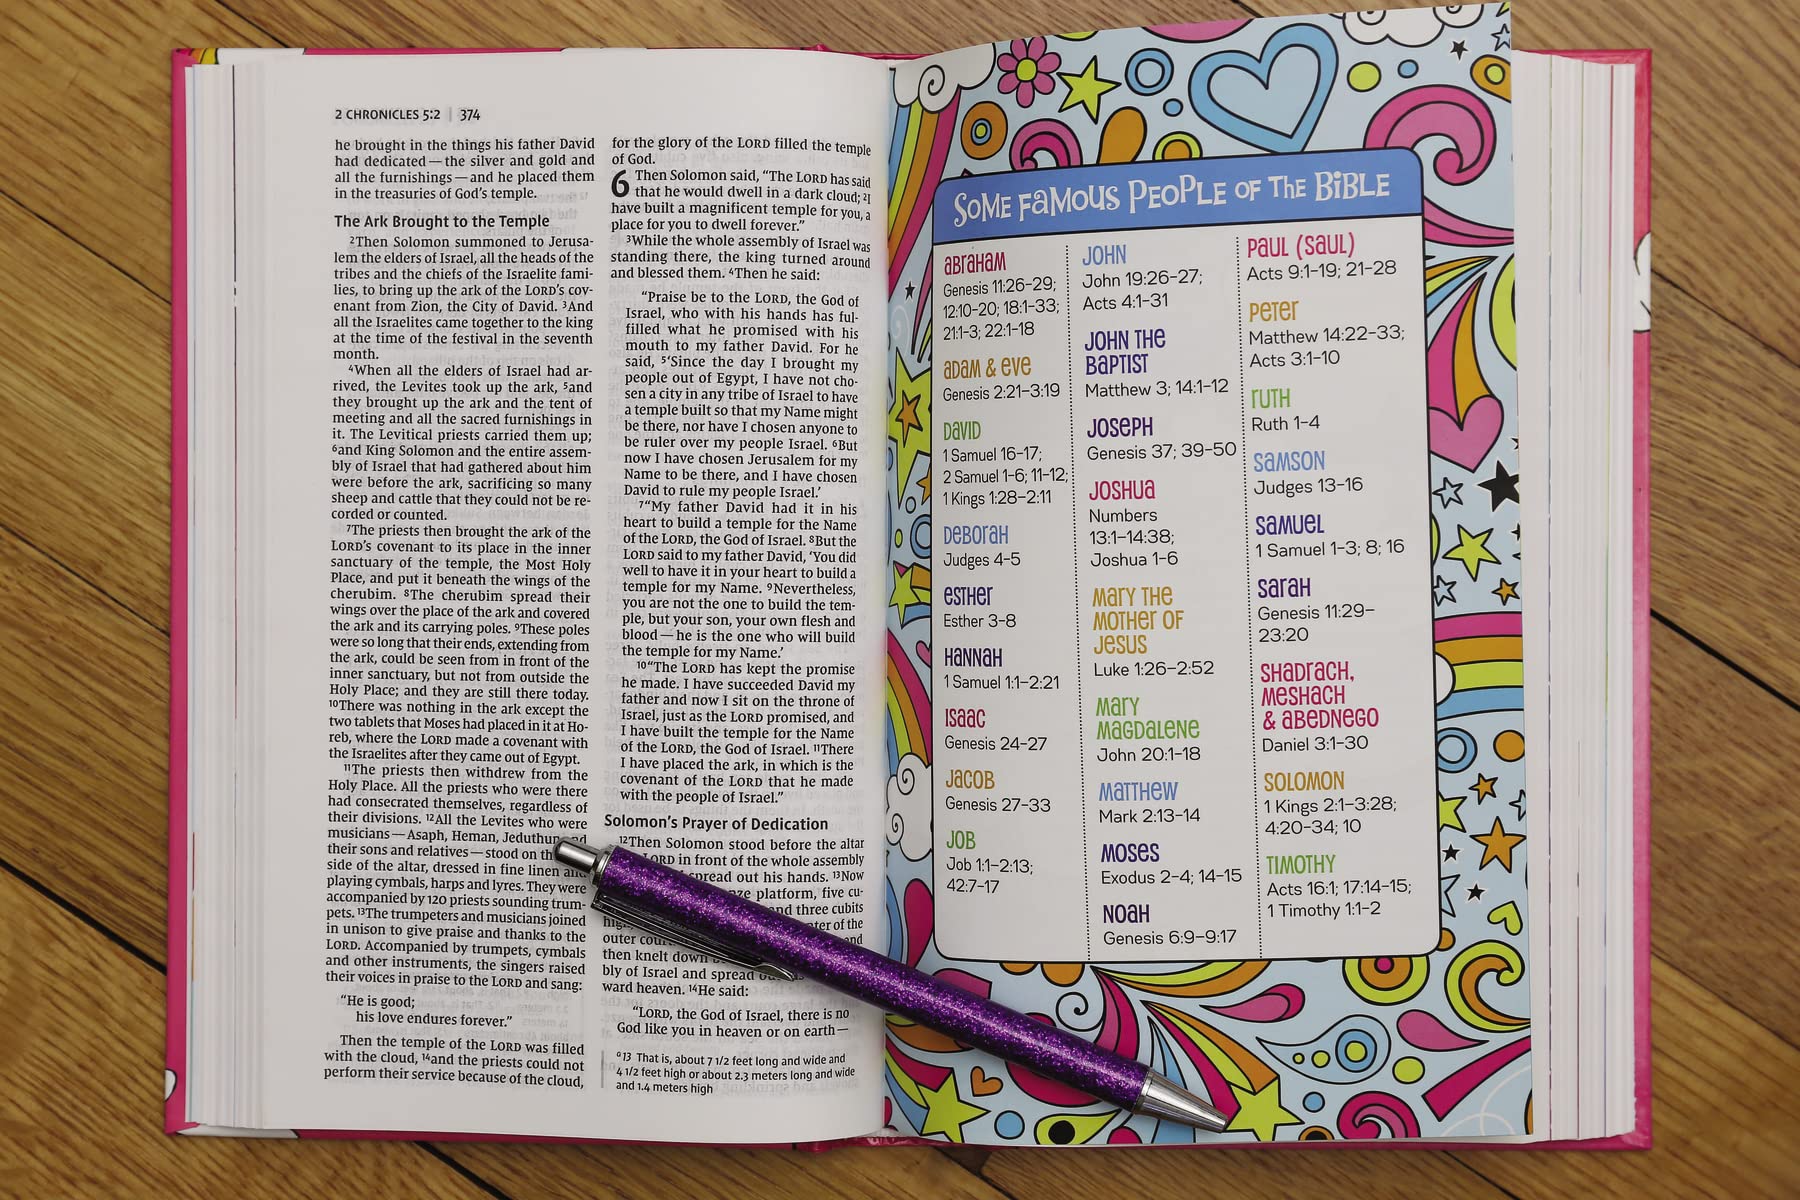 2 CHRONICLES 5:2 | 374
he brought in the things his father David
had dedicated — the silver and gold and
all the furnishings — and he placed them
in the treasuries of God's temple.
The Ark Brought to the Temple
2Then Solomon summoned to Jerusa-
lem the elders of Israel, all the heads of the
tribes and the chiefs of the Israelite fami-
lies, to bring up the ark of the LORD's cov-
enant from Zion, the City of David. 3And
all the Israelites came together to the king
at the time of the festival in the seventh
month.
4When all the elders of Israel had ar-
rived, the Levites took up the ark, 5and
they brought up the ark and the tent of
meeting and all the sacred furnishings in
it. The Levitical priests carried them up;
6and King Solomon and the entire assem-
bly of Israel that had gathered about him
were before the ark, sacrificing so many
sheep and cattle that they could not be re-
corded or counted.
7The priests then brought the ark of the
LORD's covenant to its place in the inner
sanctuary of the temple, the Most Holy
Place, and put it beneath the wings of the
cherubim. 8The cherubim spread their
wings over the place of the ark and covered
the ark and its carrying poles. 9These poles
were so long that their ends, extending from
the ark, could be seen from in front of the
inner sanctuary, but not from outside the
Holy Place; and they are still there today.
10There was nothing in the ark except the
two tablets that Moses had placed in it at Ho-
reb, where the LORD made a covenant with
the Israelites after they came out of Egypt.
11The priests then withdrew from the
Holy Place. All the priests who were there
had consecrated themselves, regardless of
their divisions. 12All the Levites who were
musicians — Asaph, Heman, Jeduthun
their sons and relatives — stood on
side of the altar, dressed in fine linen and
playing cymbals, harps and lyres. They were
accompanied by 120 priests sounding trum-
pets. 13The trumpeters and musicians joined
in unison to give praise and thanks to the
LORD. Accompanied by trumpets, cymbals
and other instruments, the singers raised
their voices in praise to the LORD and sang:
"He is good;
his love endures forever."
Then the temple of the LORD was filled
with the cloud, 14and the priests could not
perform their service because of the cloud,
for the glory of the LORD filled the temple
of God.
6 Then Solomon said, "The LORD has said
that he would dwell in a dark cloud; 2I
have built a magnificent temple for you, a
place for you to dwell forever."
3While the whole assembly of Israel was
standing there, the king turned around
and blessed them. 4Then he said:
"Praise be to the LORD, the God of
Israel, who with his hands has ful-
filled what he promised with his
mouth to my father David. For he
said, 5'Since the day I brought my
people out of Egypt, I have not cho-
sen a city in any tribe of Israel to have
a temple built so that my Name might
be there, nor have I chosen anyone to
be ruler over my people Israel. 6But
now I have chosen Jerusalem for my
Name to be there, and I have chosen
David to rule my people Israel.'
7"My father David had it in his
heart to build a temple for the Name
of the LORD, the God of Israel. 8But the
LORD said to my father David, 'You did
well to have it in your heart to build a
temple for my Name. 9Nevertheless,
you are not the one to build the tem-
ple, but your son, your own flesh and
blood — he is the one who will build
the temple for my Name.'
10"The LORD has kept the promise
he made. I have succeeded David my
father and now I sit on the throne of
Israel, just as the LORD promised, and
I have built the temple for the Name
of the LORD, the God of Israel. 11There
I have placed the ark, in which is the
covenant of the LORD that he made
with the people of Israel."
Solomon's Prayer of Dedication
12Then Solomon stood before the altar
LORD in front of the whole assembly
spread out his hands. 13Now
platform, five cu-
and three cubits
of the
outer
then knelt down
bly of Israel and spread
ward heaven. 14He said:
"LORD, the God of Israel, there is no
God like you in heaven or on earth —
a 13 That is, about 7 1/2 feet long and wide and
4 1/2 feet high or about 2.3 meters long and wide
and 1.4 meters high
SOME FAMOUS PEOPLE OF THE BIBLE
ABRAHAM
Genesis 11:26–29;
12:10–20; 18:1–33;
21:1–3; 22:1–18
ADAM & EVE
Genesis 2:21–3:19
DAVID
1 Samuel 16–17;
2 Samuel 1–6; 11–12;
1 Kings 1:28–2:11
DEBORAH
Judges 4–5
ESTHER
Esther 3–8
HANNAH
1 Samuel 1:1–2:21
ISAAC
Genesis 24–27
JACOB
Genesis 27–33
JOB
Job 1:1–2:13;
42:7–17
JOHN
John 19:26–27;
Acts 4:1–31
JOHN THE
BAPTIST
Matthew 3; 14:1–12
JOSEPH
Genesis 37; 39–50
JOSHUA
Numbers
13:1–14:38;
Joshua 1–6
MARY THE
MOTHER OF
JESUS
Luke 1:26–2:52
MARY
MAGDALENE
John 20:1–18
MATTHEW
Mark 2:13–14
MOSES
Exodus 2–4; 14–15
NOAH
Genesis 6:9–9:17
PAUL (SAUL)
Acts 9:1–19; 21–28
PETER
Matthew 14:22–33;
Acts 3:1–10
RUTH
Ruth 1–4
SAMSON
Judges 13–16
SAMUEL
1 Samuel 1–3; 8; 16
SARAH
Genesis 11:29–
23:20
SHADRACH,
MESHACH
& ABEDNEGO
Daniel 3:1–30
SOLOMON
1 Kings 2:1–3:28;
4:20–34; 10
TIMOTHY
Acts 16:1; 17:14–15;
1 Timothy 1:1–2